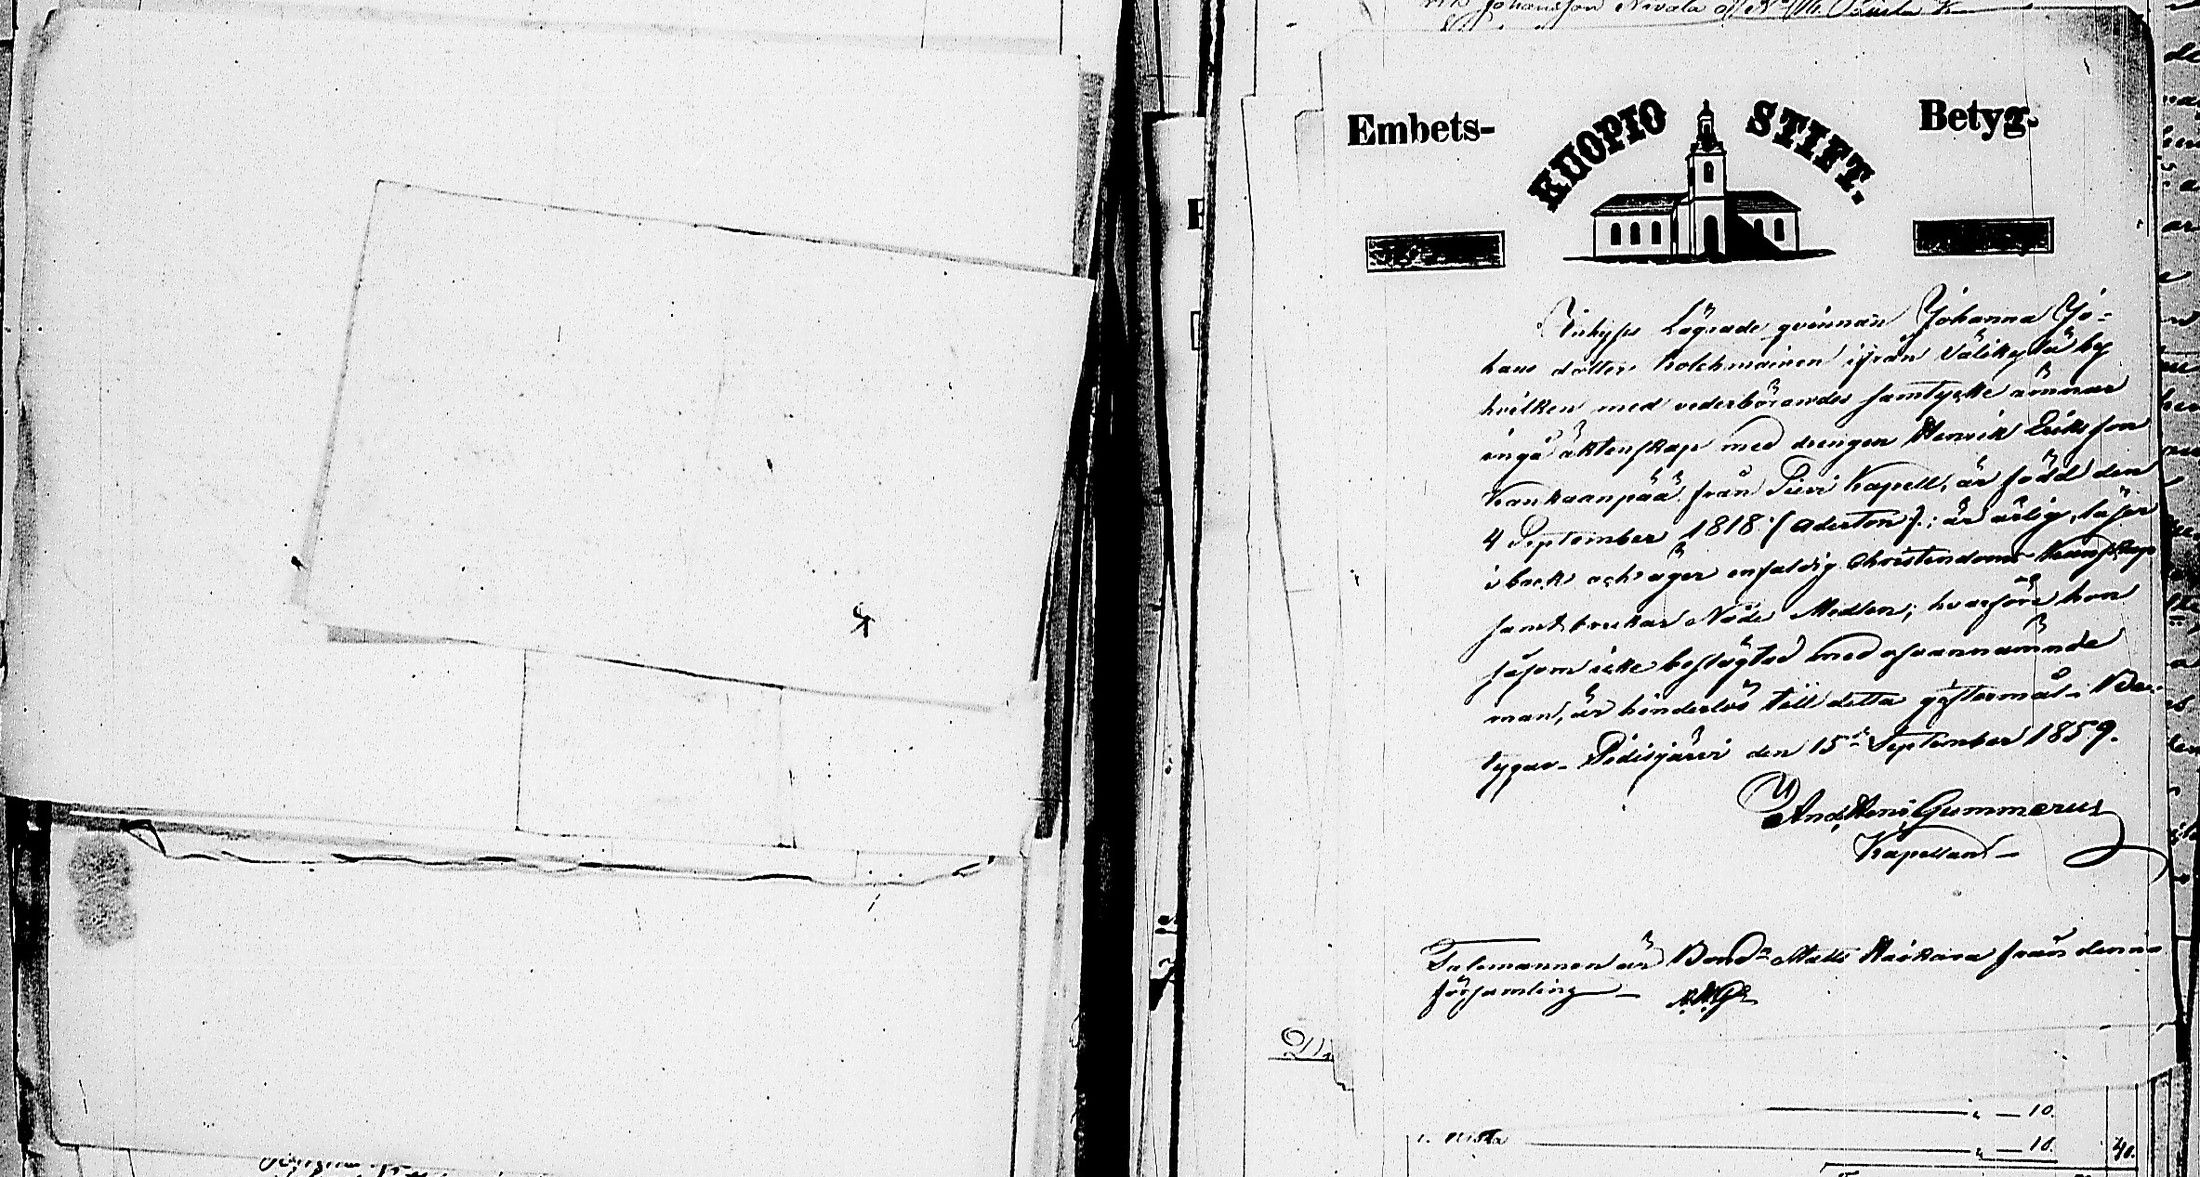 Johansson Nivala
Embets- KUOPIO STIFT. Betyg.
Lägrade qvinnan Johanna Jo-
hans dotter Kolehmainen ifrån Välikylä by
hvilken med vederbörandes samtycke ämnar
ingå äktenskap med drengen Henrik Eriksson
Kankaanpää från Pievi Kapell, är född den
4 September 1818 (aderton); är ärlig, läser
i bok och äger enfaldig Christendoms kunskap
samt brukar Nåde Medlen; hvarföre hon
såsom icke beslägtad med ofvannämnde
man, är hinderlös till detta giftermål. Be-
tygar Pidisjärvi den 15de September 1859.
And. Henr. Gummerus
Kapellan
Talemannen är Bond. Matts Raikara från denna
församling A.H.G.
— 10.
— 10. 40.